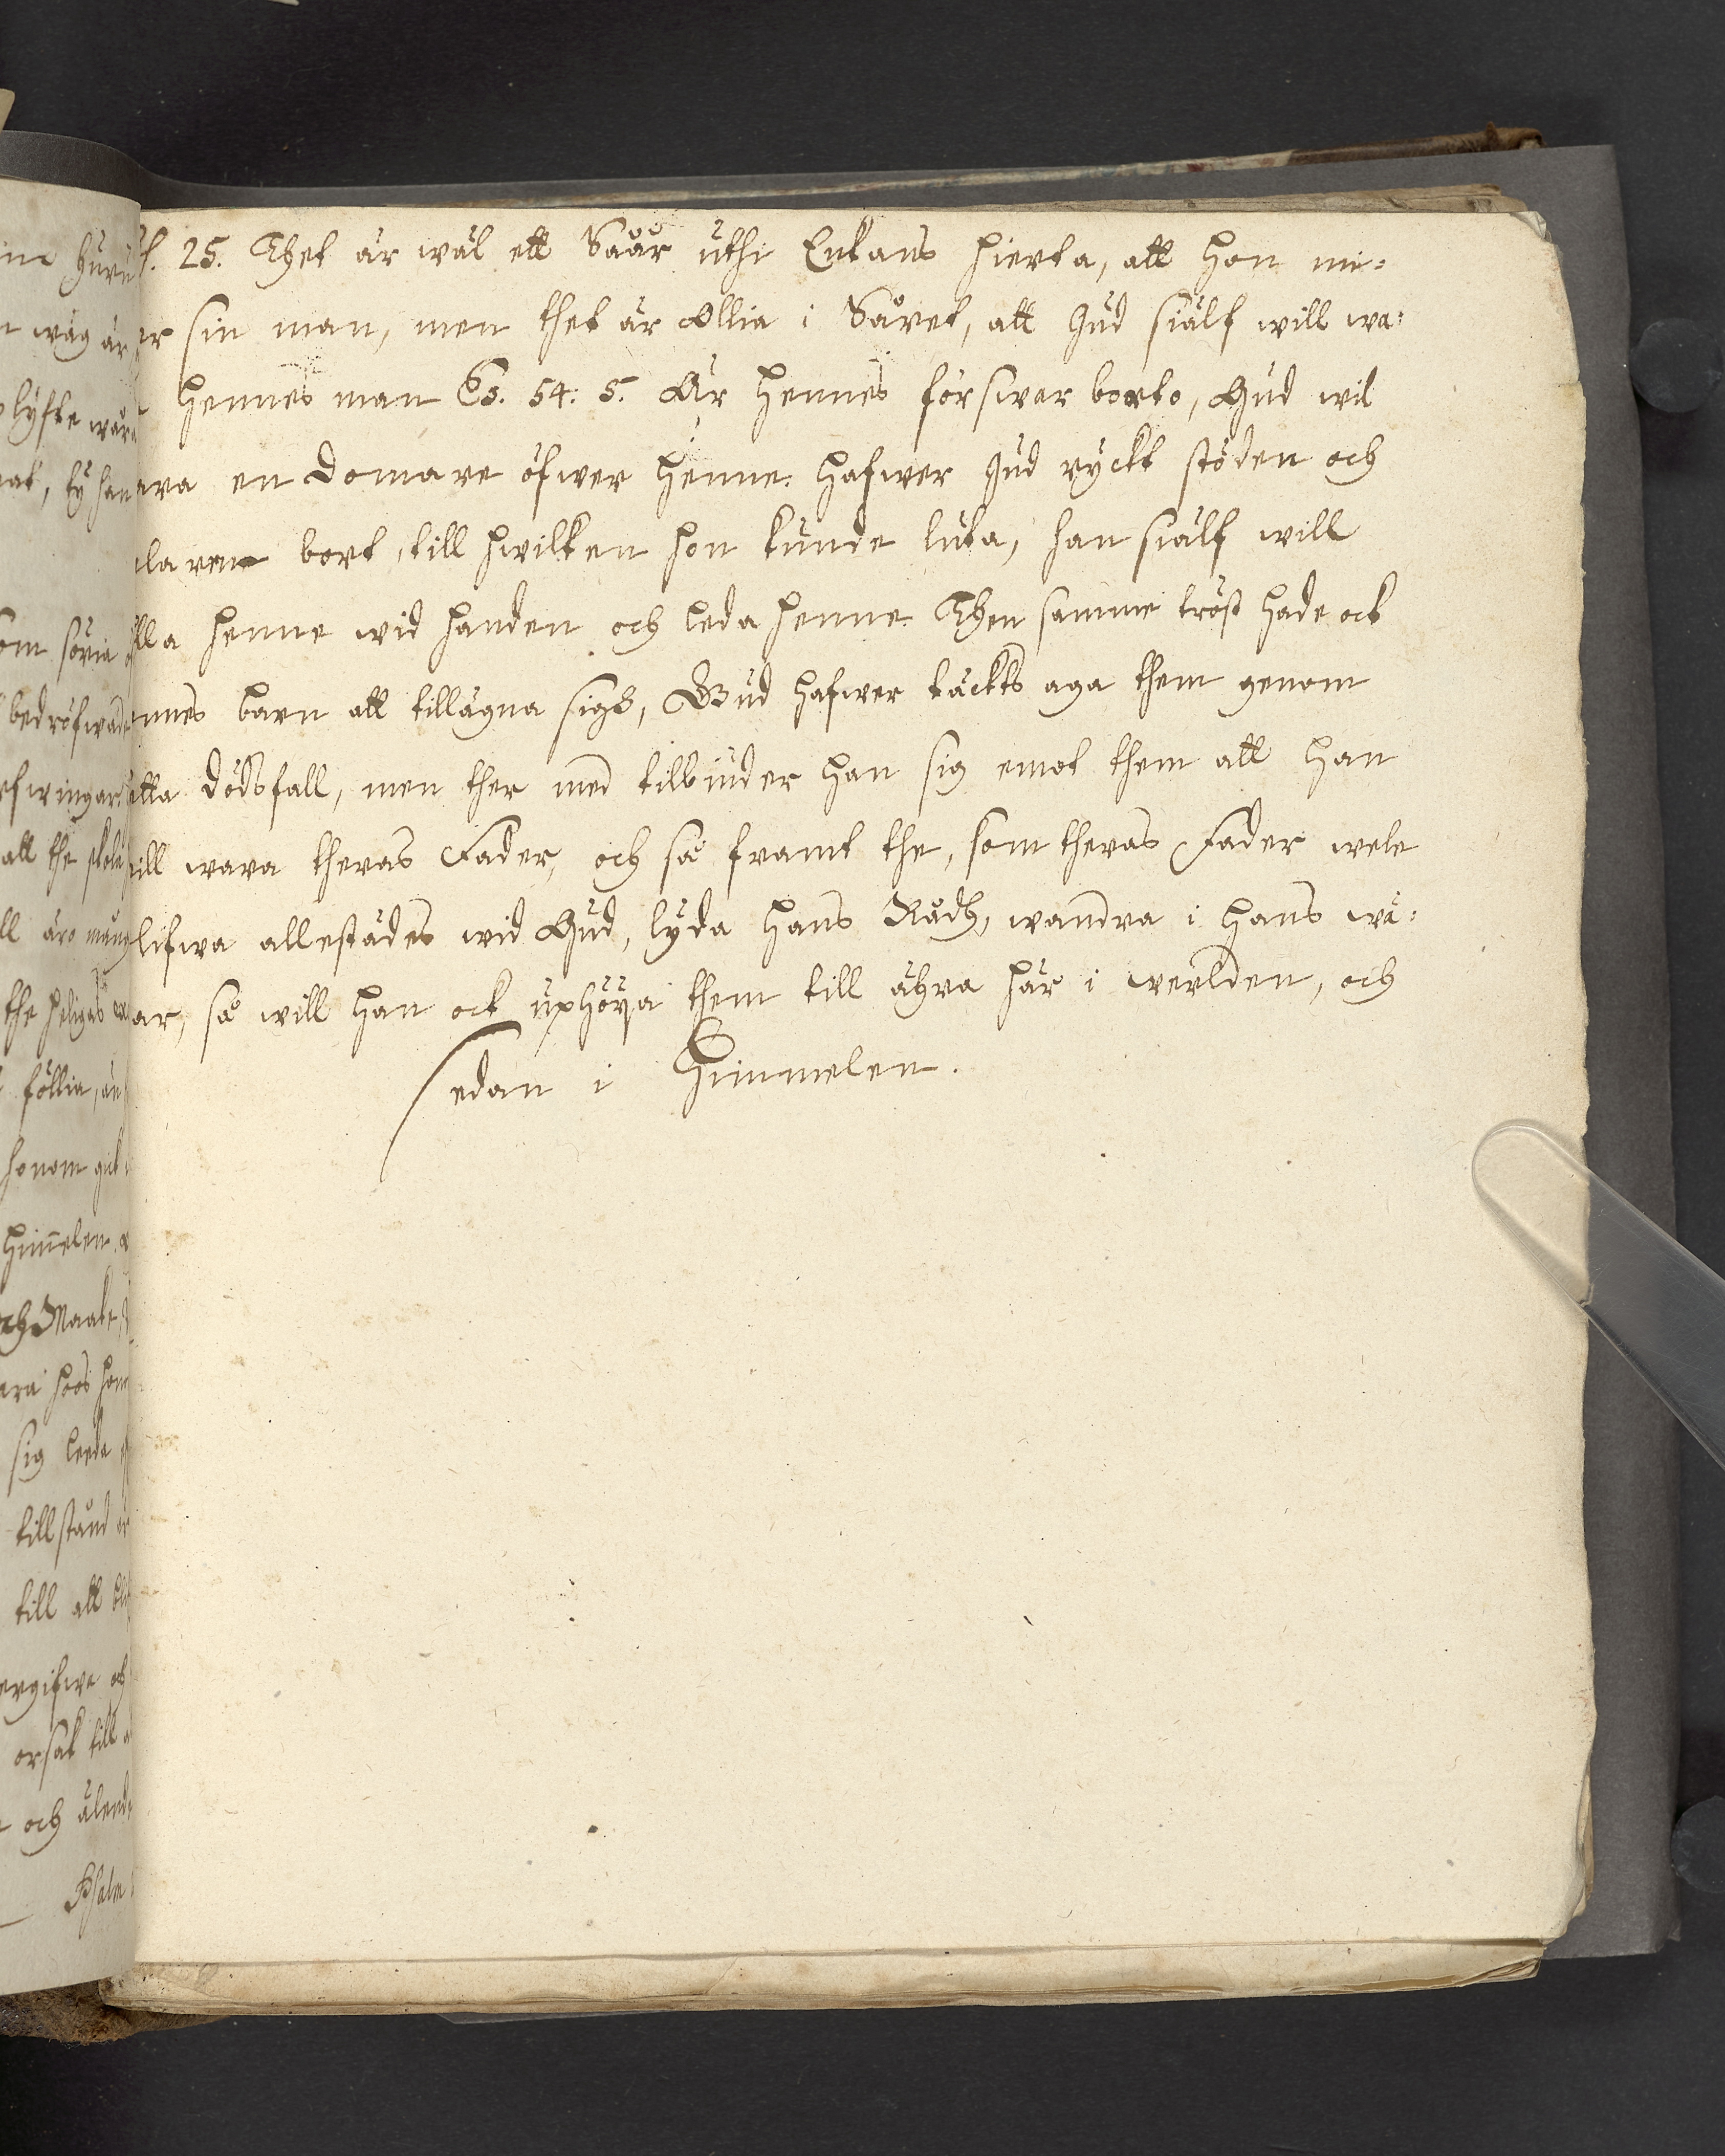 f. 25. Thet är wäl ett Såår uthi Enkans hierta, att hon mi-
er sin man, men thet är Ollia i Såret, att Gud siälf will wa-
hennes man Es. 54: 5. Är hennes förswar borto, Gud wil
ara en Domare öfwer henne. Hafwer Gud ryckt stöden och
laren bort, till hwilken hon kunde luta, han siälf will
ålla henne wid handen och leda henne. Then samme tröst hade ock
nnes barn att tillägna sigh, Gud hafwer täckts aga them genom
etta dödsfall, men ther med tilbinder han sig emot them att han
will wara theras Fader, och så framt the, som theras Fader wele
lifwa allestädes wid Gud, lyda hans Rådh, wandra i hans wä-
ar, så will han ock uphöija them till ähra här i werlden, och
sedan i Himmelen.